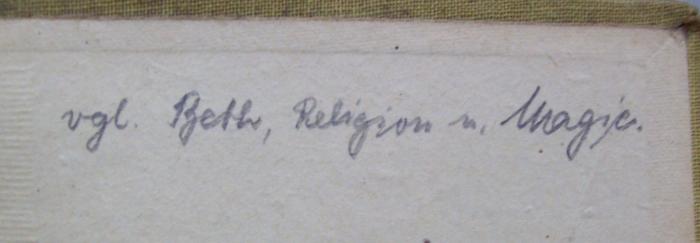 vgl. Beth, Religion u. Magie.